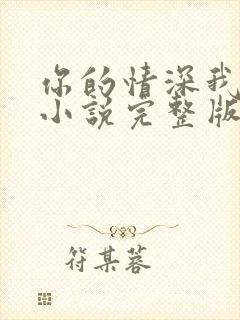 你的情深我
小说完整版
符某蓉